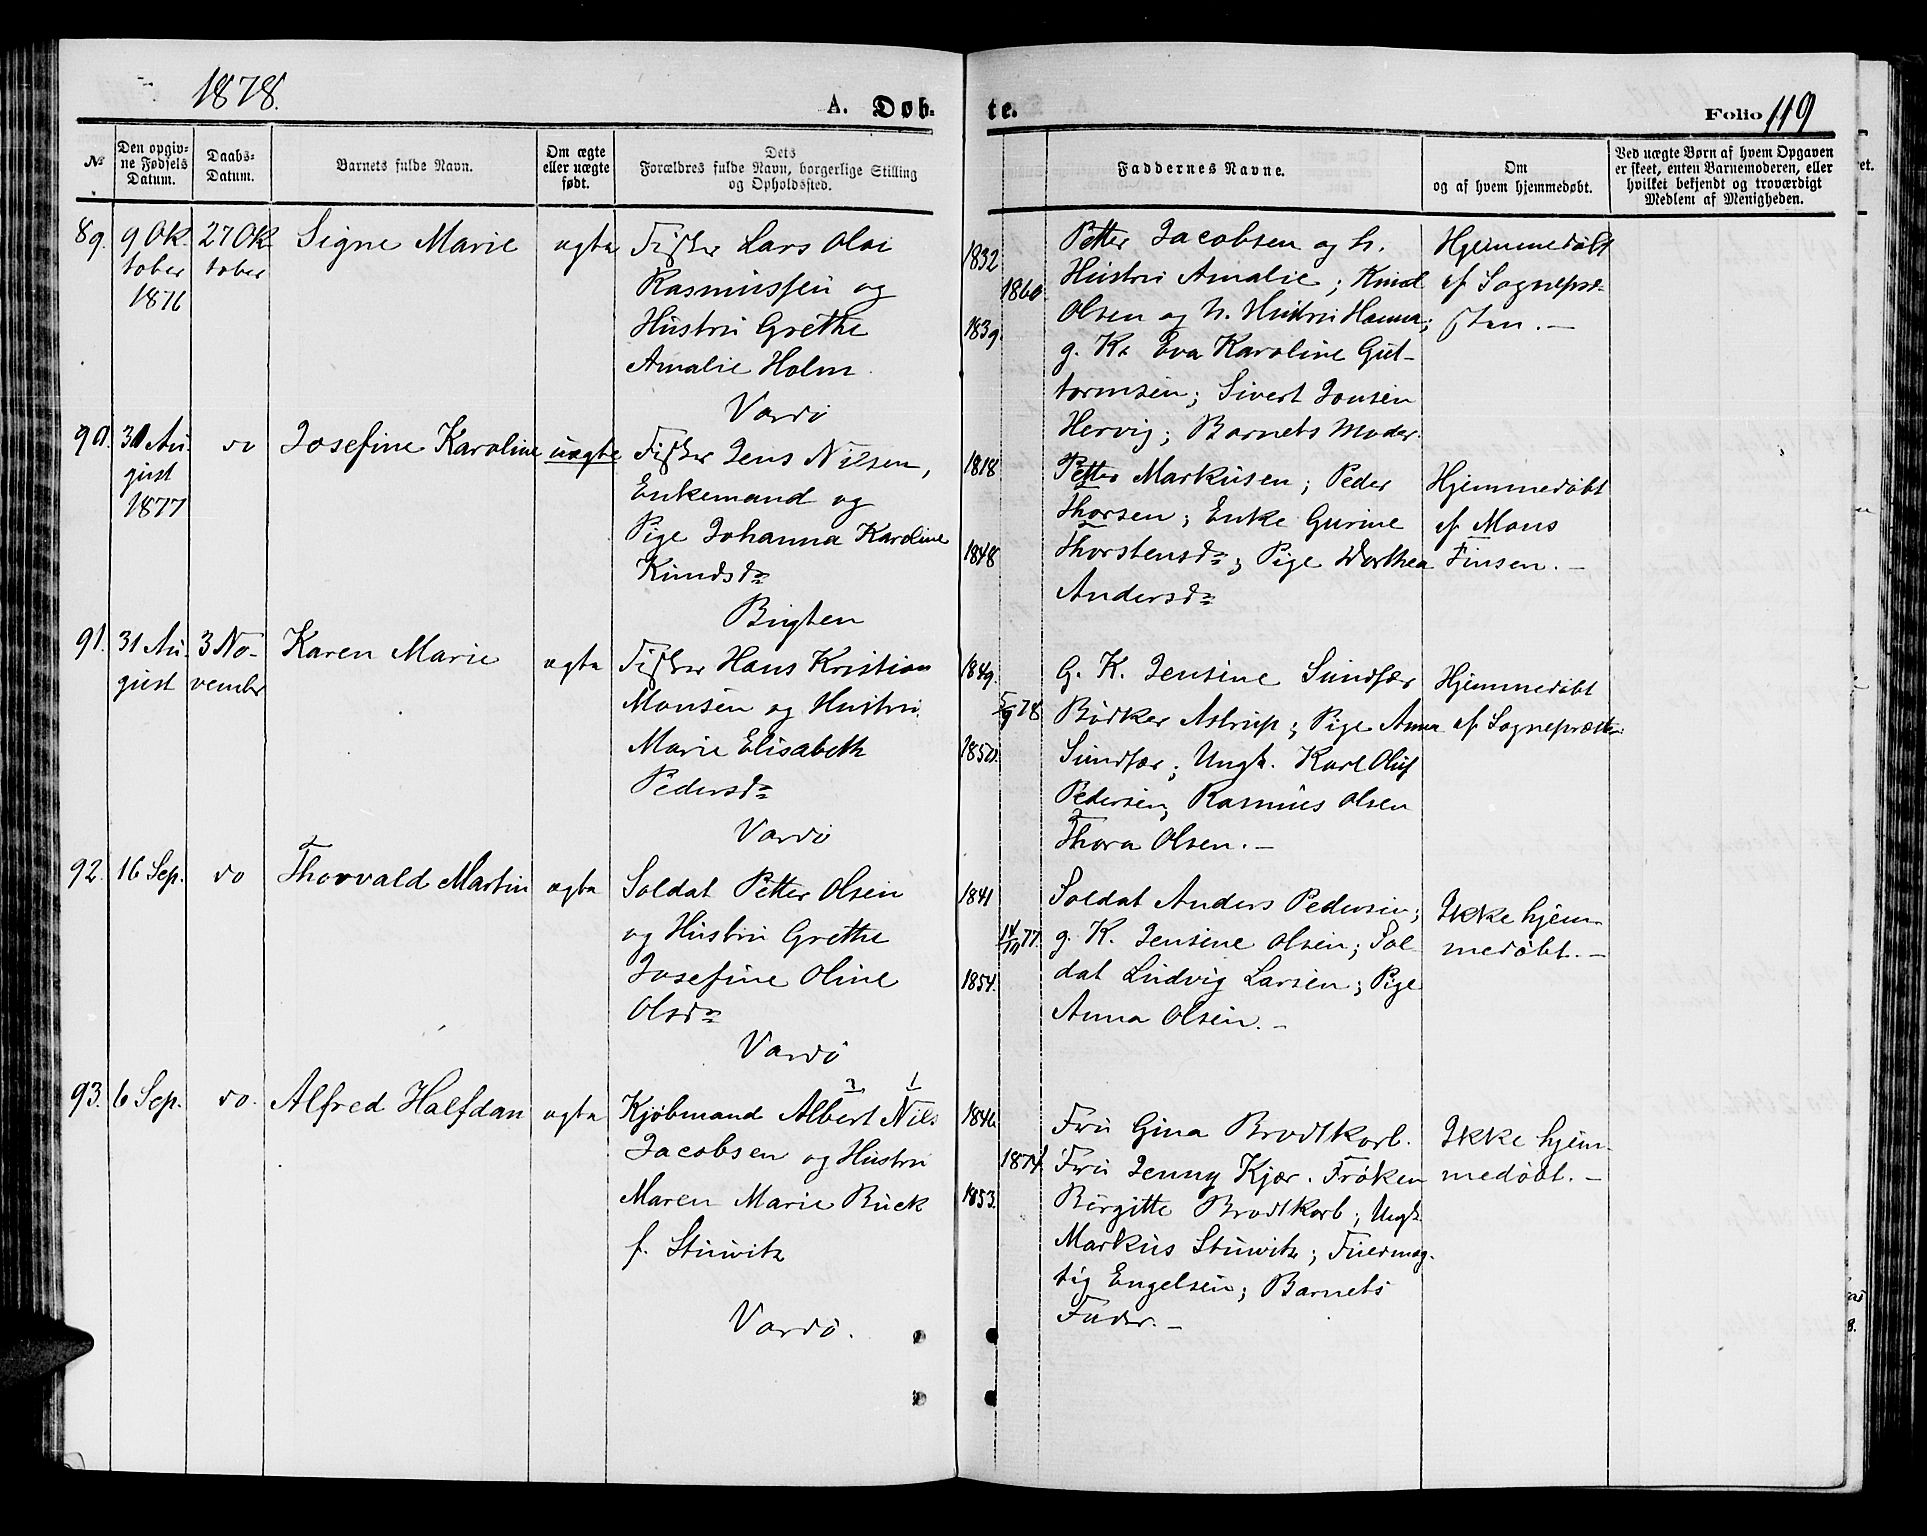 1878.
A. Døb-
te.
Folio 119
No
Den opgiv-
ne Fødsels
Datum.
Daabs-
Datum.
Barnets fulde Navn.
Om ægte
eller uægte
født.
Dets
Forældres fulde Navn, borgerlige Stilling
og Opholdssted.
Faddernes Navne.
Om
og af hvem hjemmedøbt.
Ved uægte Børn af hvem Opgaven
er skeet, enten Barnemoderen, eller
hvilket bekjendt og troværdigt
Medlem af Menigheden.
89.
9 Ok-
tober
1876
27 Ok
tober
Signe Marie
ægte
Fisker Lars Olai
Rasmussen og
Hustru Grethe
Amalie Holm
Vardø
1832
1839.
1860
Petter Jacobsen og h.
Hustru Amalie; Knud
Olsen og h. Hustru Hanna;
g. K. Eva Karoline Gut-
tormsen; Sivert Jonsen
Hervig; Barnets Moder.
Hjemmedøbt
af Sognepræ-
sten. —
90.
31 Au-
gust
1877
do
Josefine Karoline
uægte
Fisker Jens Nilsen,
Enkemand og
Pige Johanna Karoline
Knudsdr
Bugten
1818
1848
Petter Markusen; Peder
Thorsen; Enke Gurine
Thorstensdr; Pige Dorthea
Andersdr
Hjemmedøbt
af Mons
Finsen. —
91.
31 Au-
gust
3 No-
vember
Karen Marie
ægte
Fisker Hans Kristian
Monsen og Hustru
Marie Elisabeth
Pedersdr
Vardø
1849.
1850.
5/9 78
G. K. Jensine Sundfær
Bødker Astrup; Pige Anna
Sundfær; Ungk. Karl Oluf
Pedersen, Rasmus Olsen
Thora Olsen. —
Hjemmedøbt
af Sognepræsten
92.
16 Sep.
do
Thorvald Martin
ægte
Soldat Petter Olsen
og Hustru Grethe
Josefine Oline
Olsdr
Vardø
1841
1854.
14/10 77.
Soldat Anders Pedersen;
g. K. Jensine Olsen; Sol-
dat Ludvig Larsen; Pige
Anna Olsen. —
Ikke hjem-
medøbt. —
93.
6 Sep.
do.
Alfred Halfdan
ægte
2 1
Kjøbmand Albert Nils
Jacobsen og Hustru
Maren Marie Buck
f. Stuwitz
Vardø.
1846
1853.
1874.
Fru Gina Brodtkorb.
Fru Jenny Kjær. Frøken
Birgitte Brodtkorb; Ungk.
Markus Stuwitz; Fuldmæg-
tig Engelsen; Barnets
Fader. —
Ikke hjem-
medøbt. —